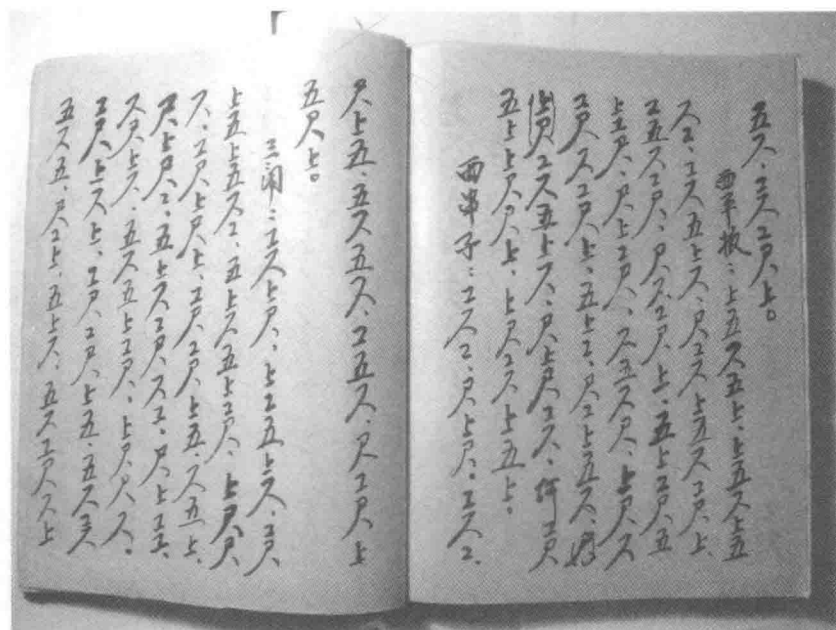 五六、工六工尺、上。
西平板：上五六五上、上五六上五
六工、工六五上六、尺工六上五六工尺、上
工五六工尺、尺六工尺、上、五上工尺、五
上工尺、尺上工尺、六五六尺、上尺六
工尺六工尺、上、五上工、尺工上五六、
工六五上六、尺上尺工六、工尺
五上上尺尺上、上尺工六上五上。
西串子：工六工、尺上尺。工六工、
尺上五、五六五六、工五六、尺工尺、上
五尺上。
三闹：工六上尺、上工五上六、工尺
上五上五六工、五上六五上工尺、上尺尺
六、工尺上尺上、工尺工尺、上五、六五上、
尺、上尺工、五上六工尺、六工、尺上工工、
六尺上六、五六五上工尺、上尺尺六。
工尺、上六上、工尺、工尺、上五、五六工六
五六五、尺工上、五上六、五六工尺六上